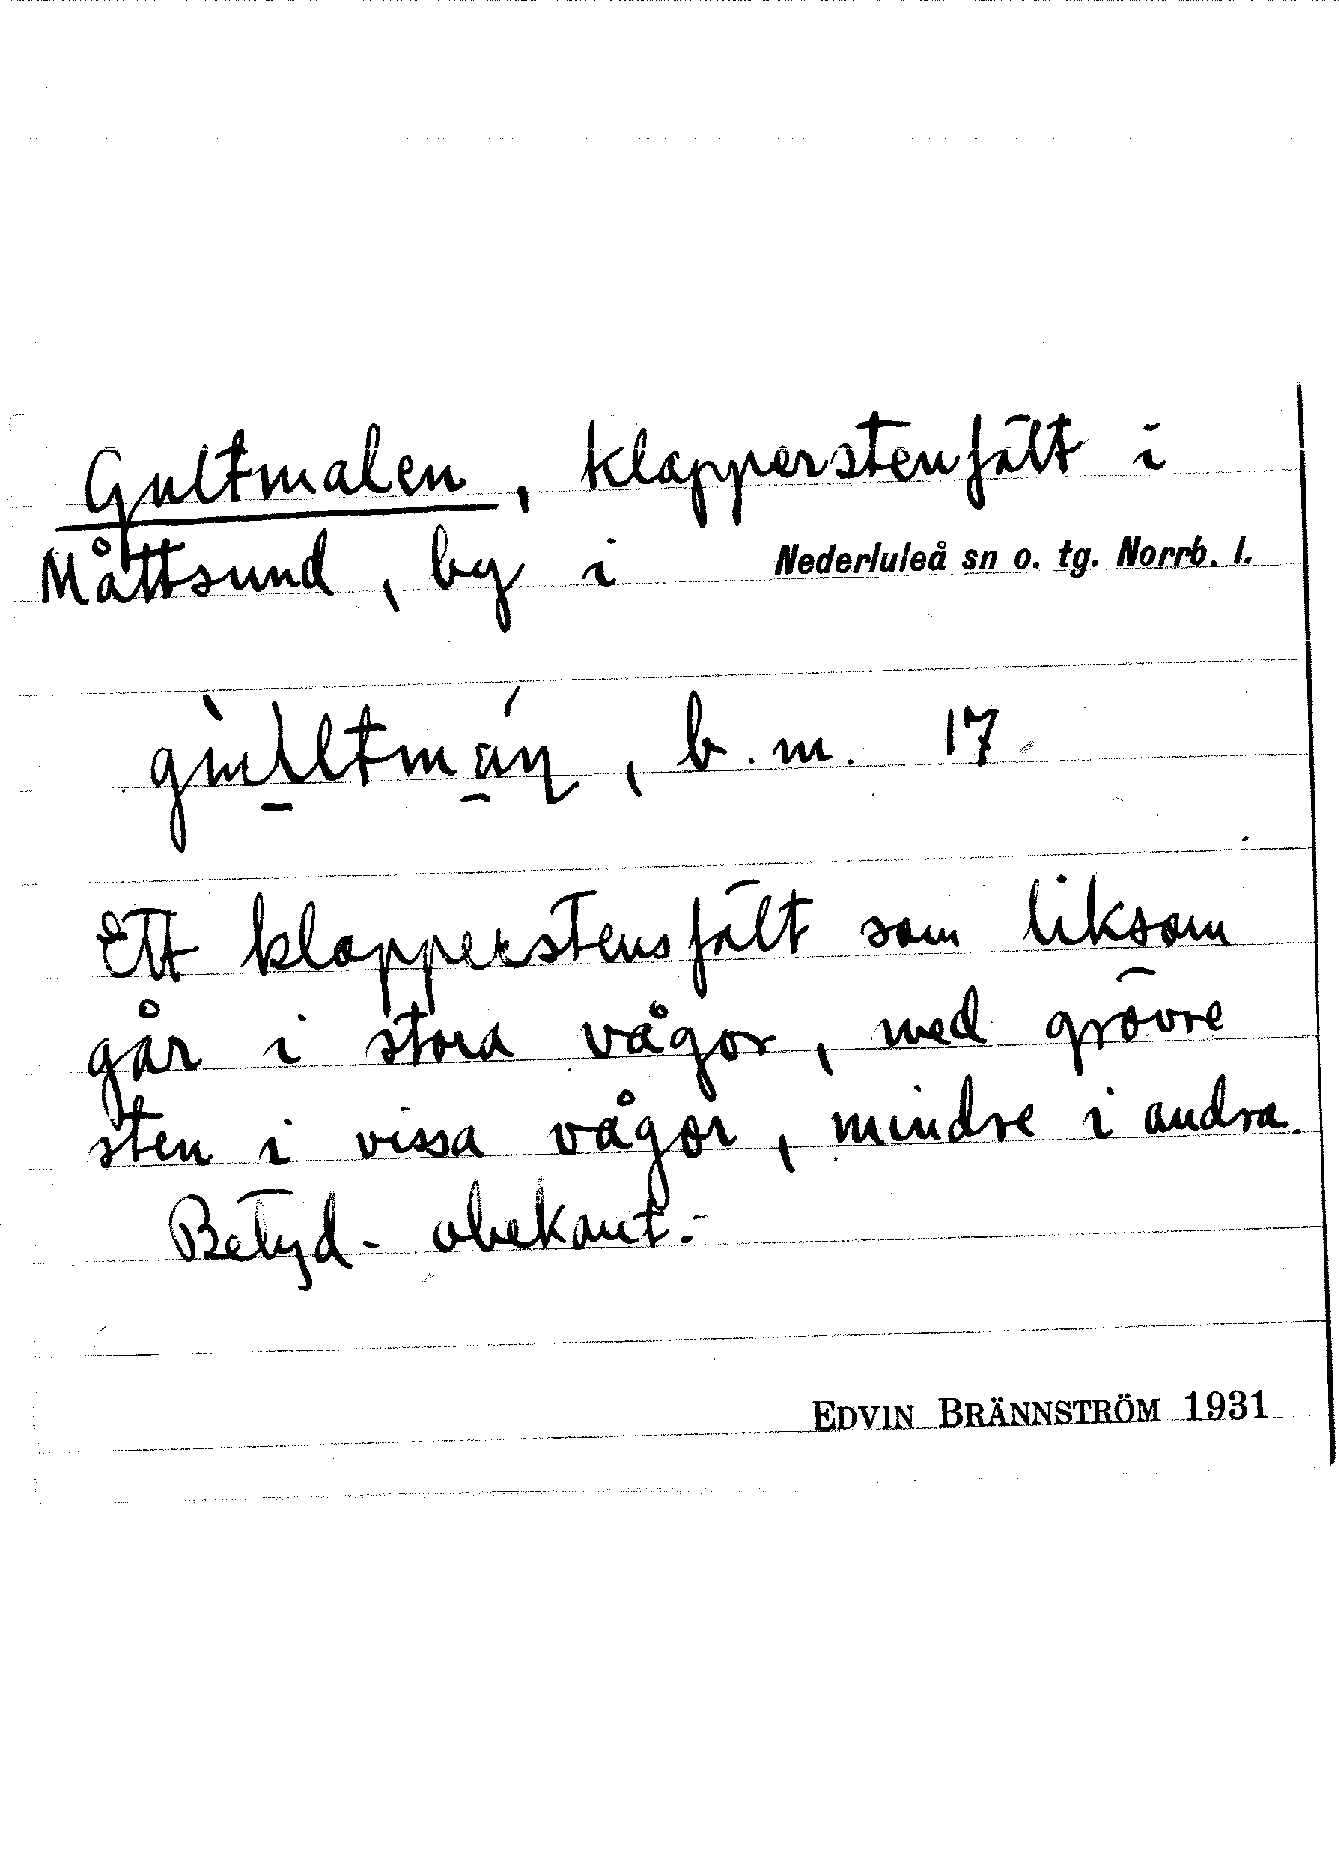 Gultmalen, klapperstenfält i
Måttsund, by i Nederluleå sn o. tg. Norrb. l.
b. m. 17
Ett klapperstensfält som liksom
går i stora vågor, med grövre
sten i vissa vågor, mindre i andra.
Betyd- obekant.-
EDVIN BRÄNNSTRÖM 1931